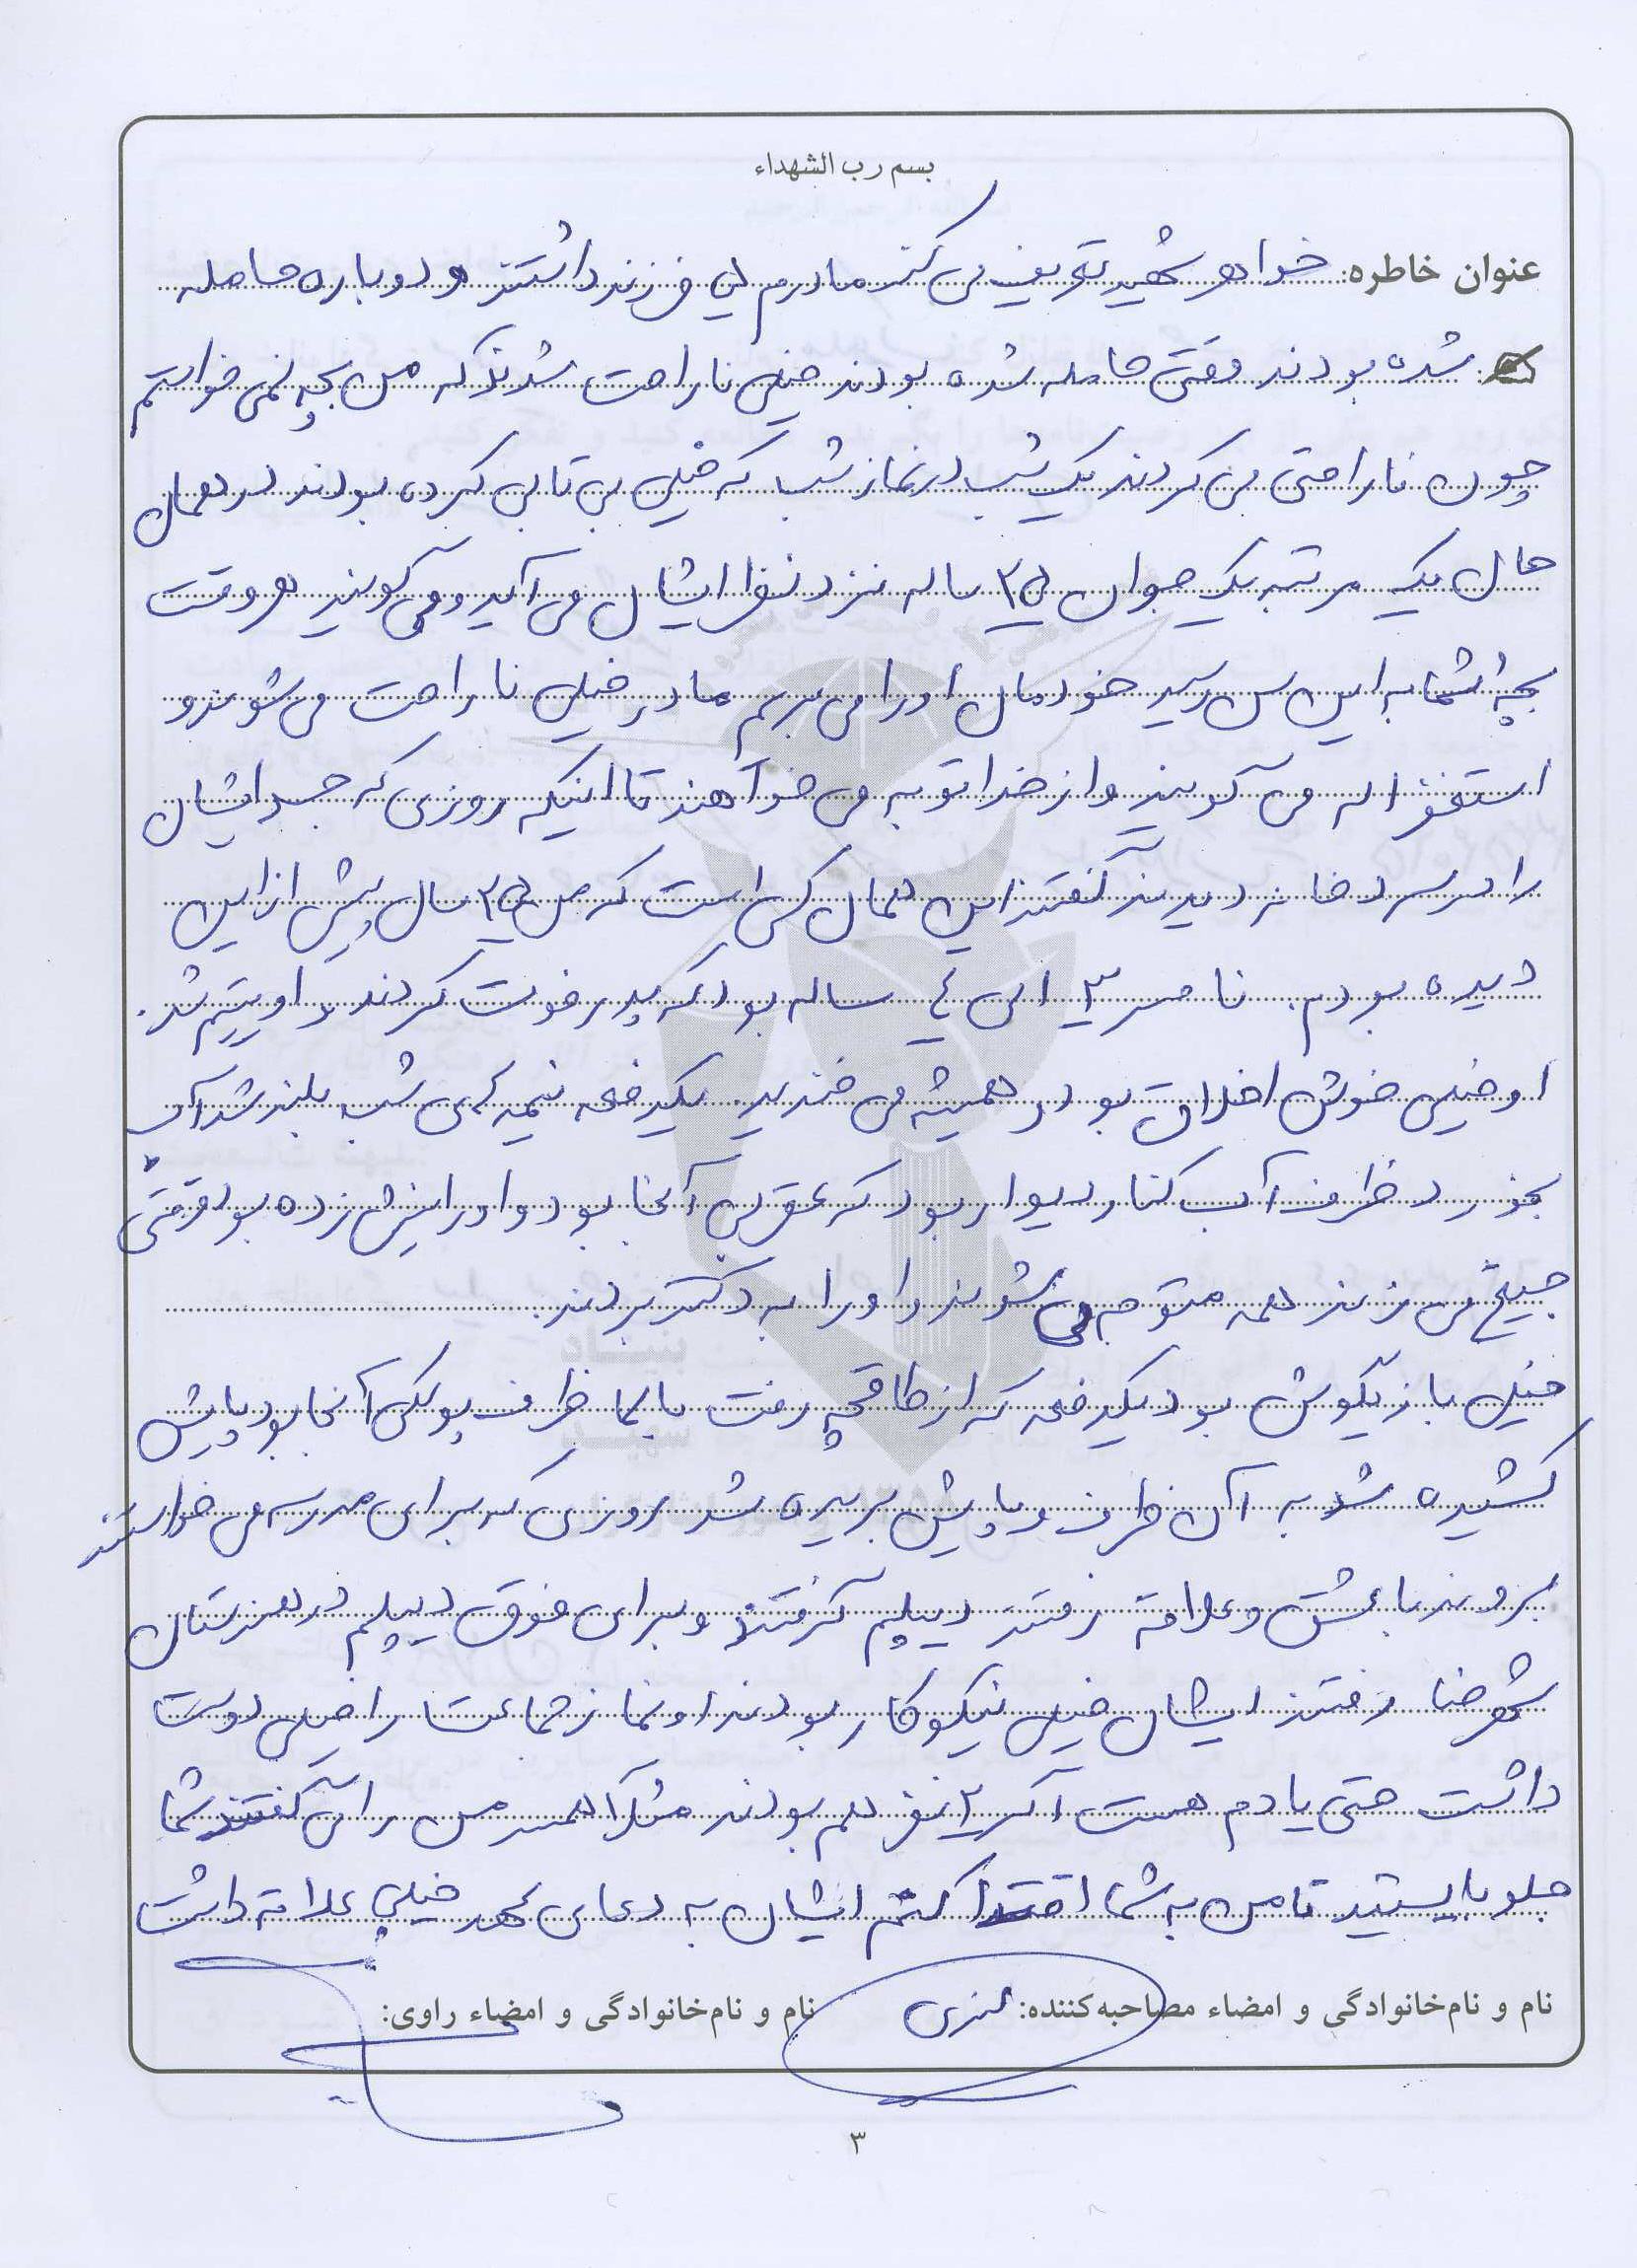 بسم رب الشهداء
عنوان خاطره: خواهر شهید تعریف می کند مادرم ۵ فرزند داشتند و دوباره حامله
شده بودند وقتی حامله شده بودند خیلی ناراحت شدند که من بچه نمی خواستم
چون ناراحتی می کردند یک شب در نماز شب که خیلی بی تابی کرده بودند در همان
حال یک مرتبه یک جوان ۲۵ ساله نزد ایشان می آید و می گویند هر وقت
بچهٔ شما به این سن رسید خودمان او را می بریم مادر خیلی ناراحت می شوند و
استغفراله می گویند و از خدا توبه می خواهند تا اینکه روزی که جسد ایشان
را در سردخانه دیدند گفتند این همان کسی است که من ۲۵ سال پیش از این
دیده بودم. ناصر ۳ الی ۴ ساله بود که پدر فوت کردند و او یتیم شد.
او خیلی خوش اخلاق بود و همیشه می خندید. یکدفعه نیمه ی شب بلند شد آب
بخورد ظرف آب کنار دیوار بود که عقربی آنجا بود و او را نیش زده بود وقتی
جیغ می زنند همه متوجه می شوند و او را به دکتر بردند.
خیلی بازیگوش بود یکدفعه که از طاقچه رفت بالا ظرف پولکی آنجا بود پایش
کشیده شد به آن ظرف و پایش بریده شد روزی که برای مدرسه می خواستند
بروند با عشق و علاقه رفتند دیپلم گرفتند و برای فوق دیپلم در هنرستان
شهرضا رفتند ایشان خیلی نیکوکار بودند او نماز جماعت را خیلی دوست
داشت حتی یادم هست اگر ۲ نفر هم بودند مثلا همسر من راآن گفتند شما
جلو بایستید تا من به شما اقتدا کنم ایشان به دعای عهد خیلی علاقه داشت
نام و نام‌خانوادگی و امضاء مصاحبه‌کننده:
نام و نام‌خانوادگی و امضاء راوی:
۳